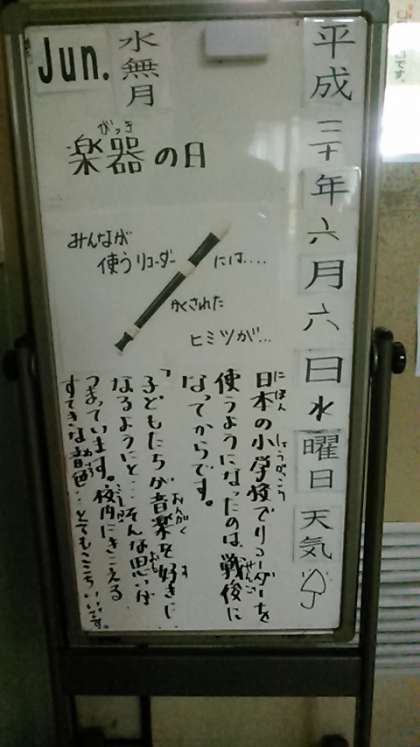 平成三十年六月六日水曜日天気
Jun.
水無月
がっき
楽器の日
みんなが
使うリコーダーには....
かくされた
ヒミツが...
にほん しょうがっこう
日本の小学校でリコーダーを
使うようになったのは、戦後に
せんご
なってからです。
「子どもたちが音楽を好きに
おんがく す
なるようにと…そんな思いが
おも
つまっています。校内にきこえる
こうない
すてきな音色…とてもここちいいです。
ねいろ